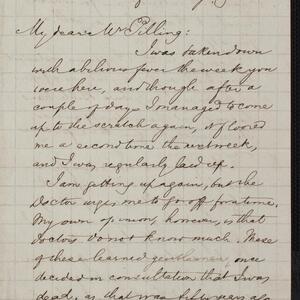 My dear Mr Pilling:
I was taken down
with a bilious fever the week you
were here, and though after a
couple of days I managed to come
up to the scratch again, it floored
me a second time the next week,
and I was regularly laid up.
I am getting up again, but the
Doctor urges me to go off for a time.
My own opinion, however, is that
doctors do not know much. Three
of these learned gentlemen once
decided in consultation that I was
dead, as that was fifty years ago